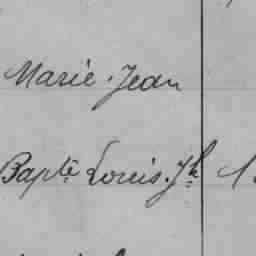 Marie. Jean
Bapte Louis. Jh